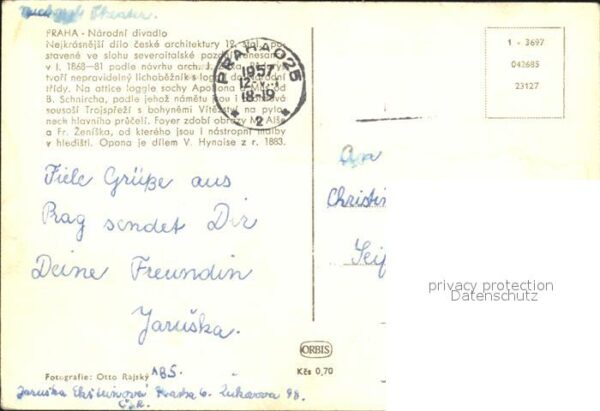 PRAHA - Národní divadlo
Nejkrásnější dílo české architektury 19. stol., po-
stavené ve slohu severoitalské pozdní renesan
v l. 1868-81 podle návrhu arch. J.
tvoří nepravidelný lichoběžník s log
třídy. Na attice loggie sochy Apo a Mús od
B. Schnircha, podle jehož námětu jsou i
sousoší Trojspřeží s bohyněmi Vítězství na pylo-
nech hlavního průčelí. Foyer zdobí obrazy M. Alše
a Fr. Ženíška, od kterého jsou i nástropní malby
v hledišti. Opona je dílem V. Hynaise z r. 1883.
PRAHA 025
1957
18-19
* 2 *
1 - 3697
042685
23127
Fiele Grüße aus
Prag sendet Dir
Deine Freundin
Jaruška.
An
Christin
Seif
privacy protection
Datenschutz
ORBIS
Kčs 0,70
Fotografie: Otto Rajský
Abs.
Jaruška Praha 6. 98.
ČSR.